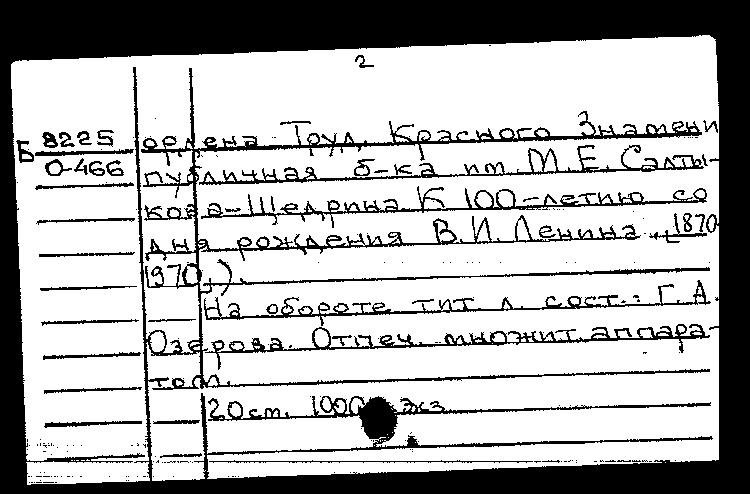 2
Б 8225 ордена Труд. Красного Знамени
0-466 публичная б-ка им. М.Е. Салты-
кова-Щедрина К 100-летию со
дня рождения В.И. Ленина. 1870-
1970).
На обороте тит л. сост.: Г.А.
Озерова. Отпеч. множит. аппара-
том.
20 см. 1000 экз